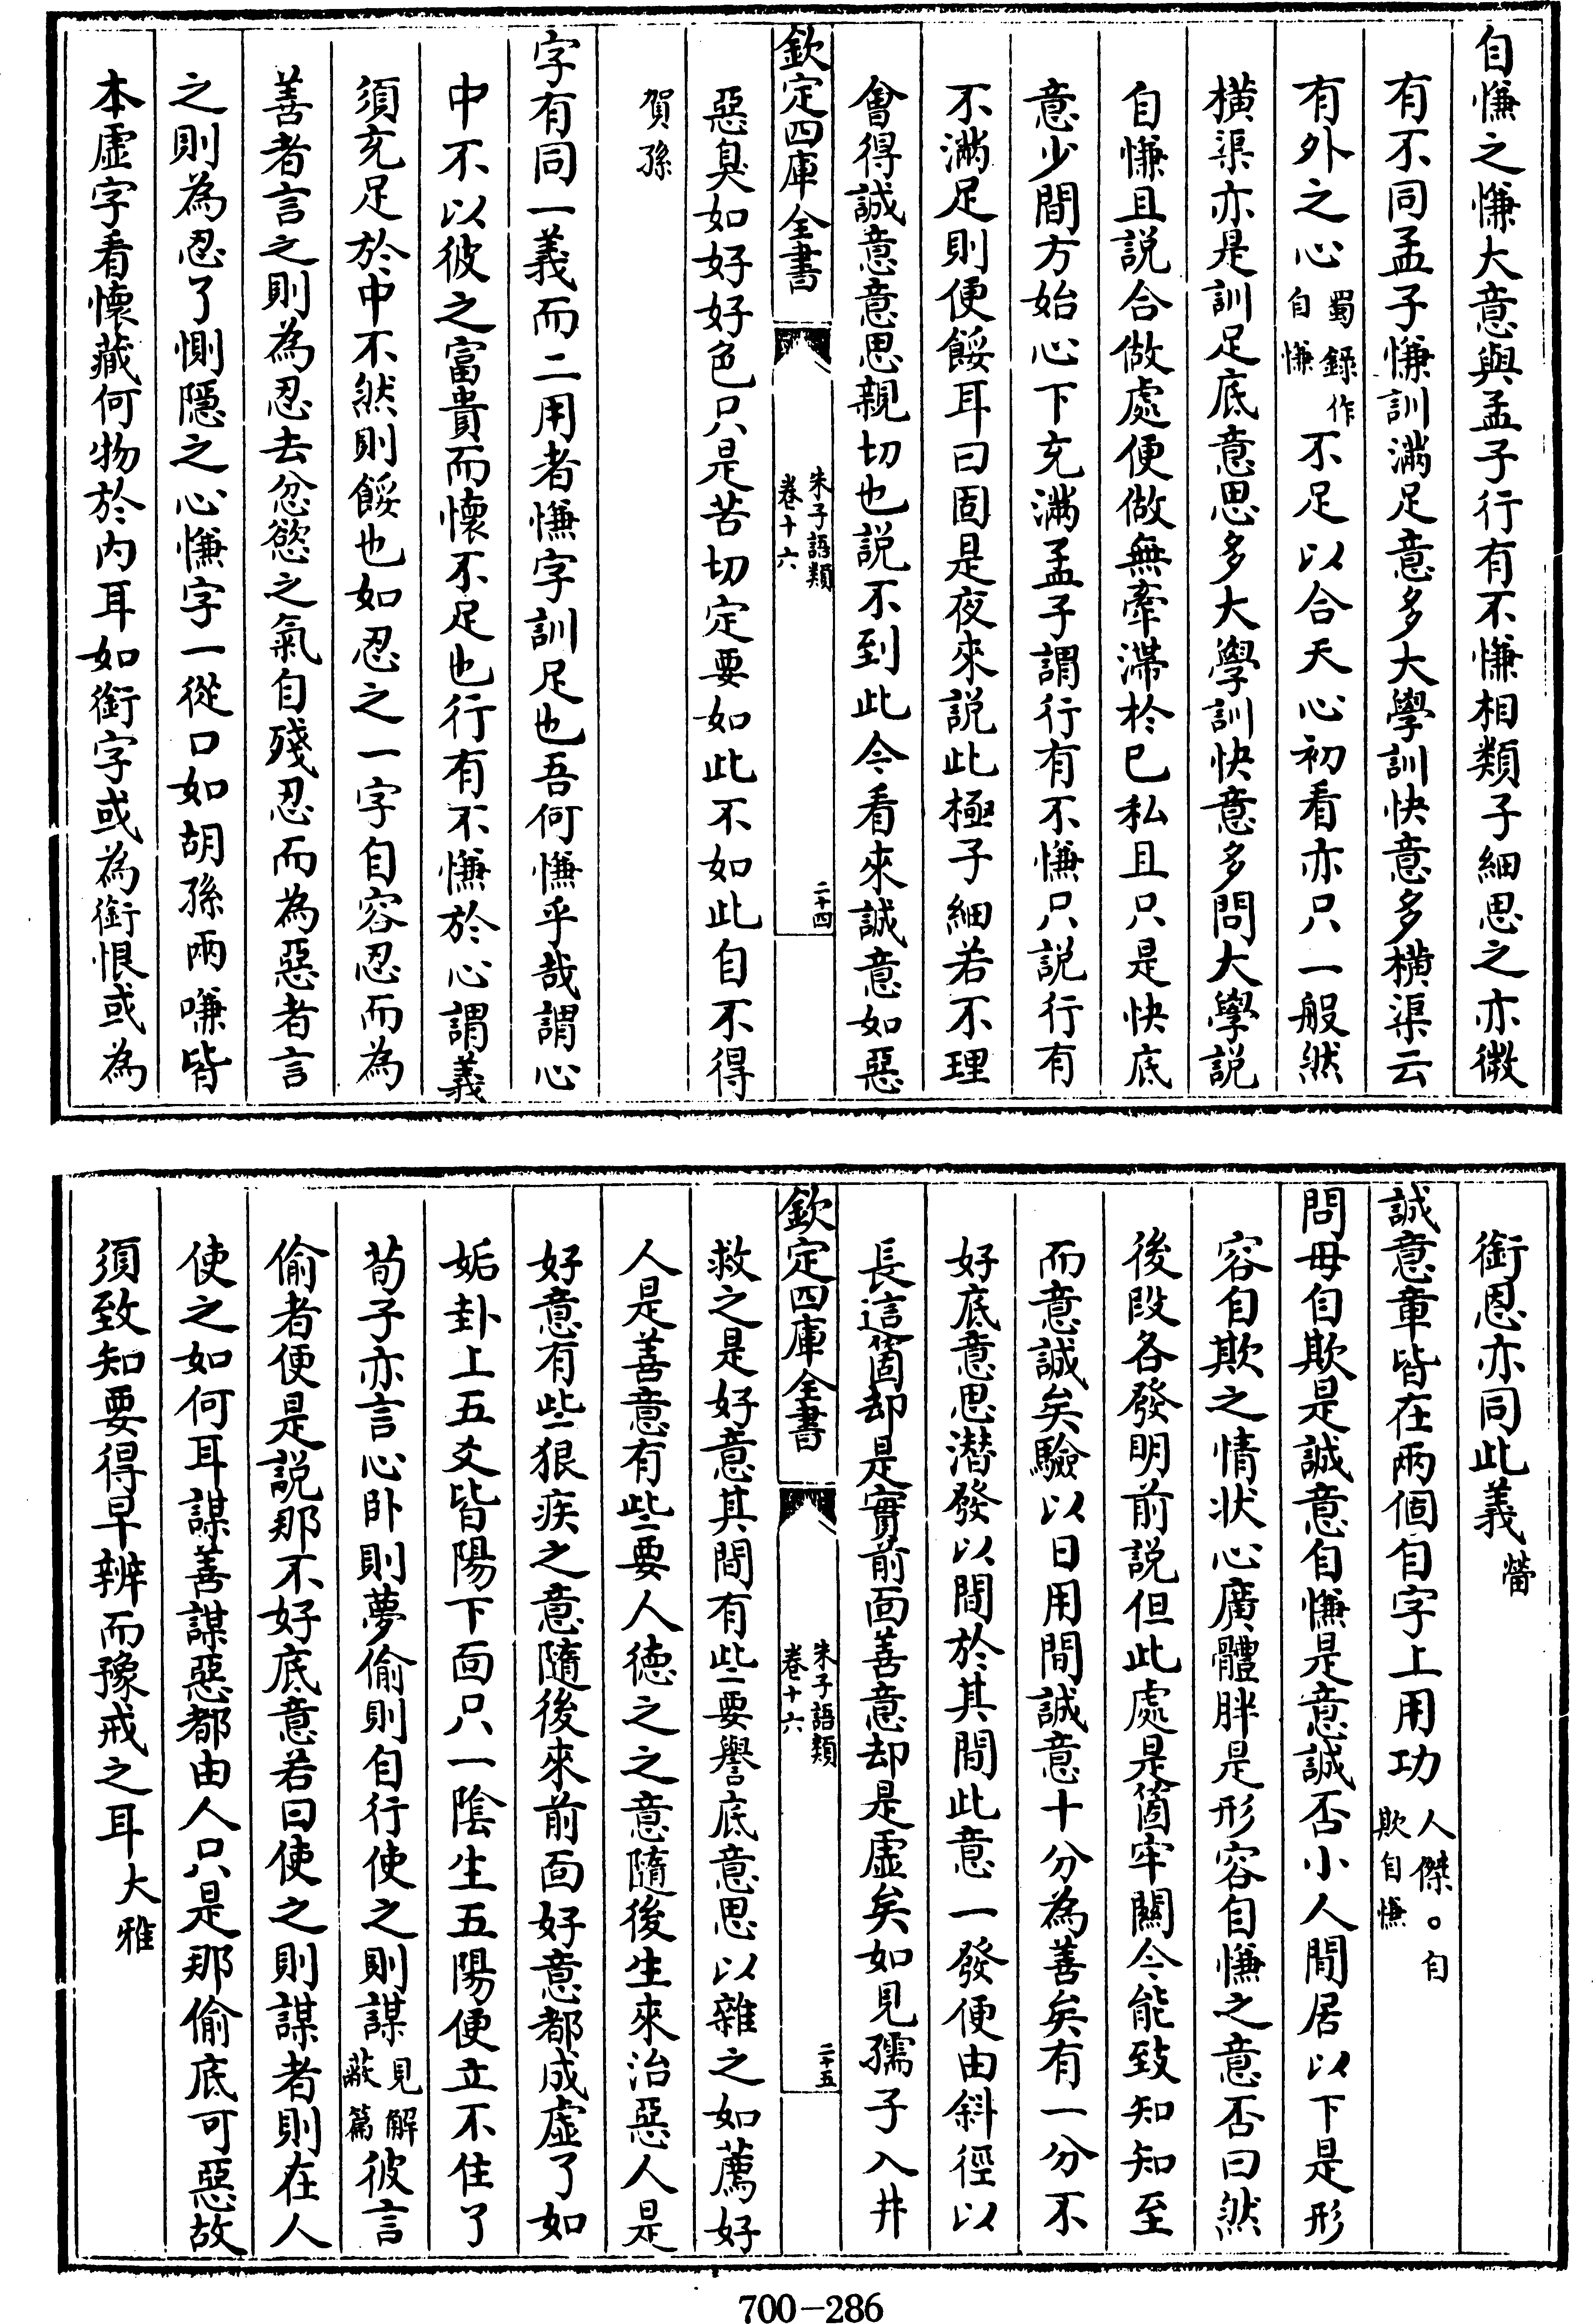 自慊之慊大意與孟子行有不慊相類子細思之亦微
有不同孟子慊訓滿足意多大學訓快意多橫渠云
有外之心蜀錄作自慊不足以合天心初看亦只一般然
橫渠亦是訓足底意思多大學訓快意多問大學說
自慊且説合做處便做無牽滯於已私且只是快底
意少間方始心下充滿孟子謂行有不慊只説行有
不滿足則便餒耳曰固是夜來説此極子細若不理
會得誠意意思親切也説不到此今看來誠意如惡
欽定四庫全書
朱子語類
卷十六
二十四
惡臭如好好色只是苦切定要如此不如此自不得
賀孫
字有同一義而二用者慊字訓足也吾何慊乎哉謂心
中不以彼之富貴而懷不足也行有不慊於心謂義
須充足於中不然則餒也如忍之一字自容忍而為
善者言之則為忍去忿慾之氣自殘忍而為惡者言
之則為忍了惻隱之心慊字一從口如胡孫兩嗛皆
本虛字看懷藏何物於内耳如銜字或為銜恨或為
銜恩亦同此義㽦
誠意章皆在兩個自字上用功人傑。自欺自慊
問毋自欺是誠意自慊是意誠否小人閒居以下是形
容自欺之情狀心廣體胖是形容自慊之意否曰然
後段各發明前説但此處是箇牢關今能致知知至
而意誠矣驗以日用間誠意十分為善矣有一分不
好底意思潛發以間於其間此意一發便由斜徑以
長這箇却是實前面善意却是虛矣如見孺子入井
欽定四庫全書
朱子語類
卷十六
二十五
救之是好意其間有些要譽底意思以雜之如薦好
人是善意有些要人德之之意隨後生來治惡人是
好意有些狠疾之意隨後來前面好意都成虛了如
姤卦上五爻皆陽下面只一陰生五陽便立不住了
荀子亦言心卧則夢偷則自行使之則謀見解蔽篇彼言
偷者便是説那不好底意若曰使之則謀者則在人
使之如何耳謀善謀惡都由人只是那偷底可惡故
須致知要得早辨而豫戒之耳大雅
700-286